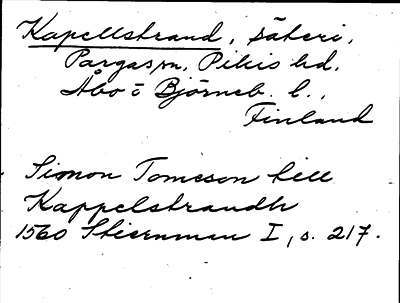 Kapellstrand, säteri,
Pargas sn, Pikis hd.
Åbo o Björneb. l.,
Finland
Simon Tomeson till
Kappelstrandh
1560 Stiernman I, s. 217.